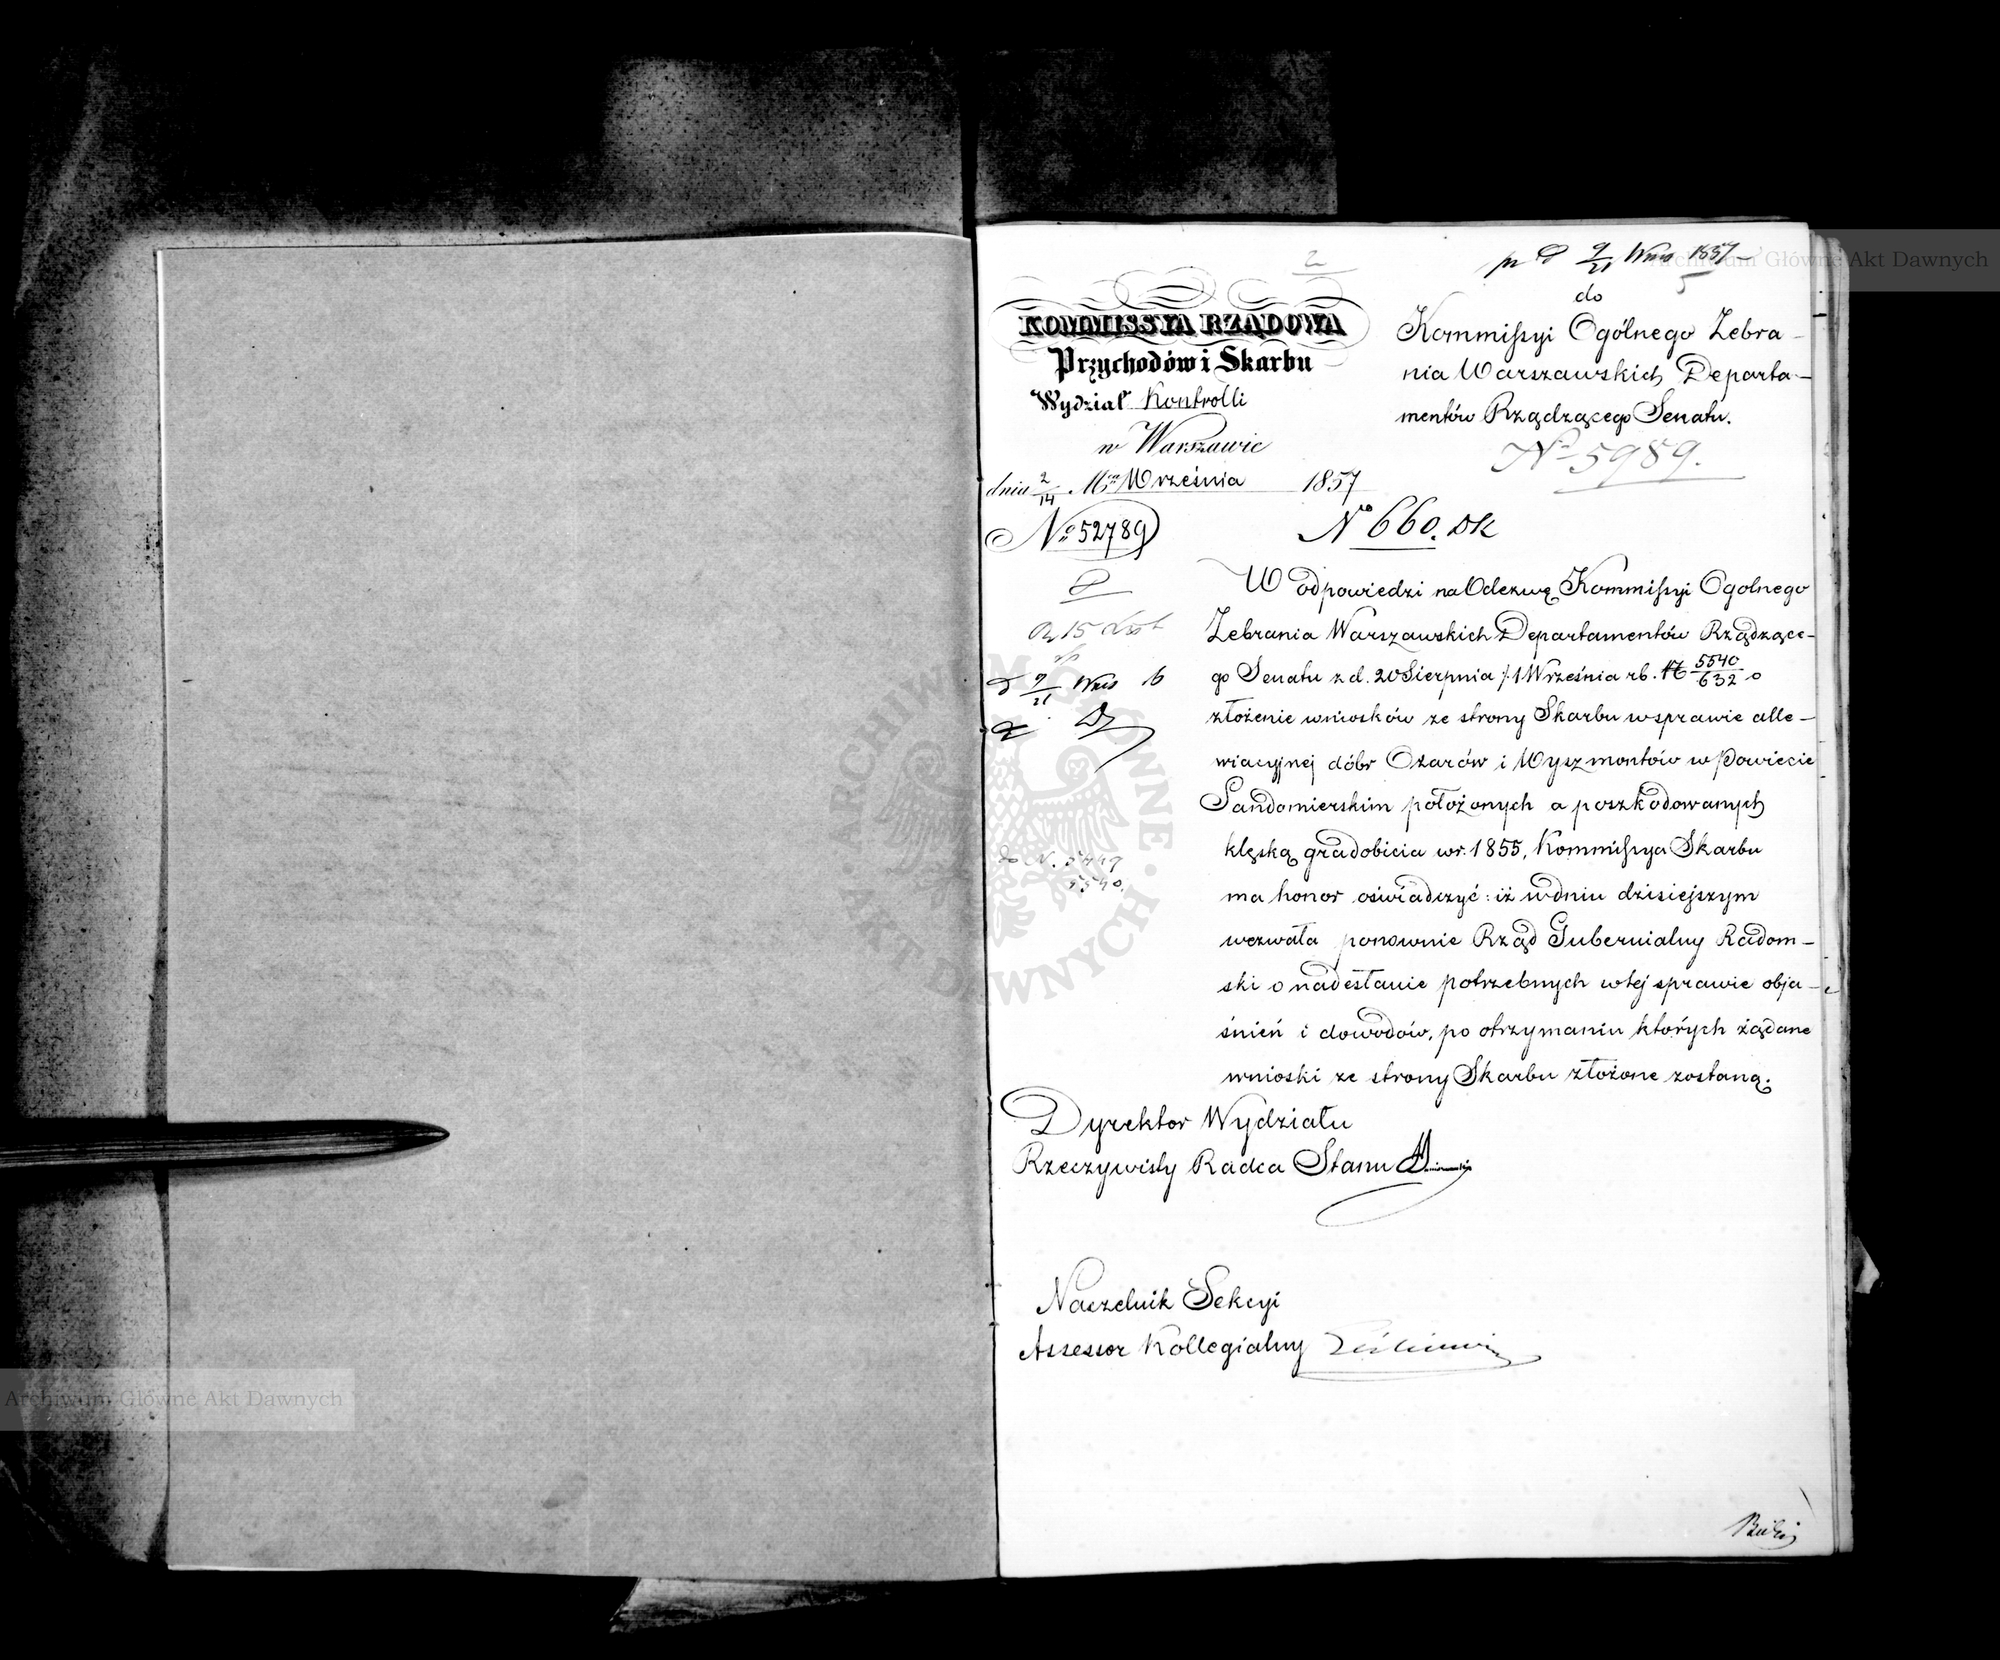 2
5
do
KOMMISSYA RZĄDOWA
Przychodów i Skarbu
Wydział Kontrolli
w Warszawie
dnia 2/14 Mca Września 1857
No 52789
Kommissyi Ogólnego Zebra-
nia Warszawskich Departa-
mentów Rządzącego Senatu.
No 5989.
No 660. DK
W odpowiedzi na Odezwę Kommissyi Ogolnego
Zebrania Warszawskich Departamentów Rządzące-
go Senatu z d. 20 Sierpnia /. 1 Września rb. 5540/632 o
złożenie wniosków ze strony Skarbu w sprawie alle-
wiacyjnej dóbr Ożarów i Wyszmontów w Powiecie
Sandomierskim położonych a poszkodowanych
klęską gradobicia w r. 1855, Kommissya Skarbu
ma honor oświadczyć: iż w dniu dzisiejszym
wezwała ponownie Rząd Gubernialny Radom-
ski o nadesłanie potrzebnych w tej sprawie obja-
śnień i dowodów, po otrzymaniu których żądane
wnioski ze strony Skarbu złożone zostaną.
do N. 5449
5540.
Dyrektor Wydziału
Rzeczywisty Radca Stanu
Naczelnik Sekcyi
Assessor Kollegialny
Archiwum Główne Akt Dawnych
Archiwum Główne Akt Dawnych
ARCHIWUM GŁÓWNE AKT DAWNYCH